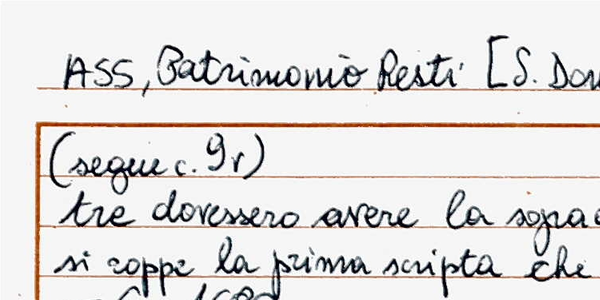 ASS, Patrimonio Resti [S. Dom
(segue c. 9r)
tre dovessero avere la sopra
si roppe la prima scripta che